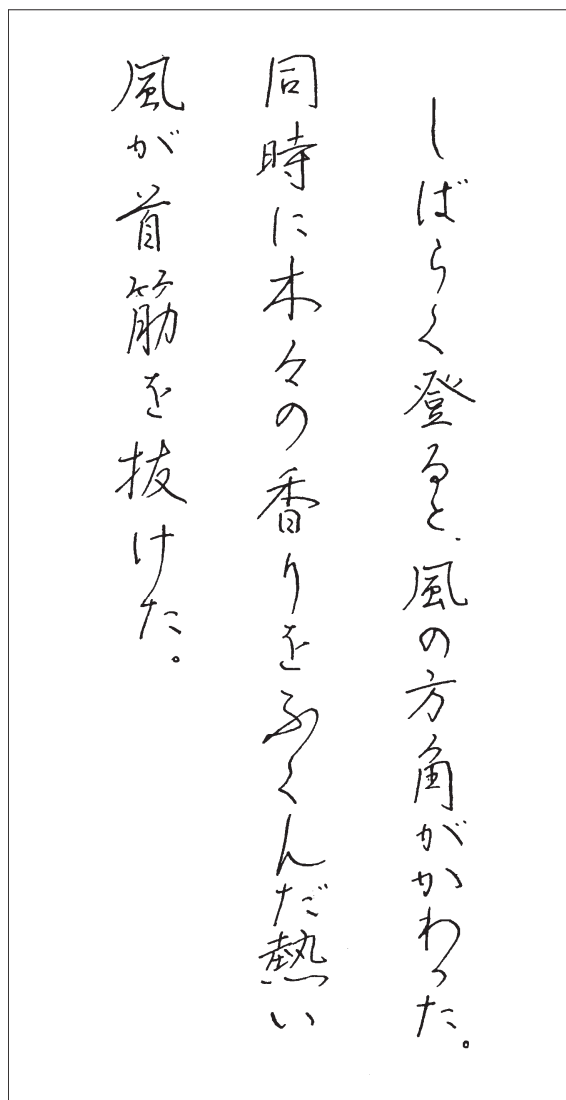 しばらく登ると、風の方角がかわった。
同時に木々の香りをふくんだ熱い
風が首筋を抜けた。